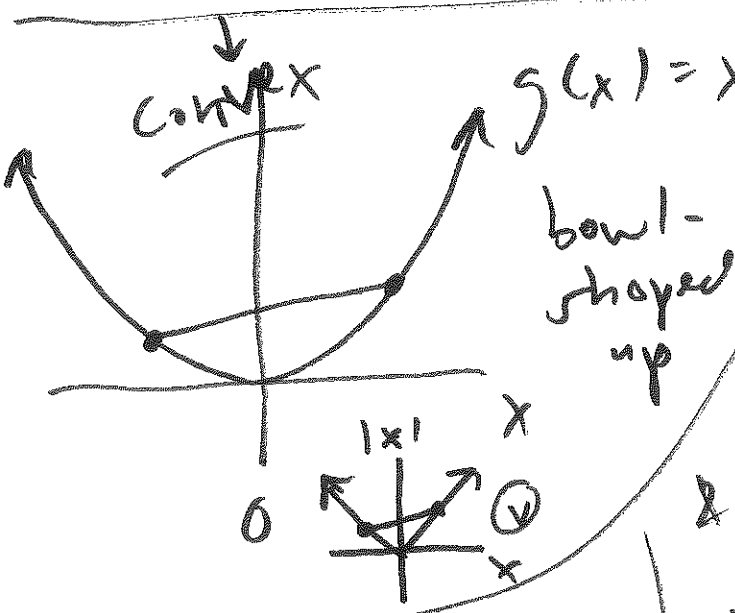 convex
g(x) =
bowl-
shaped
up
x
|x|
0
x